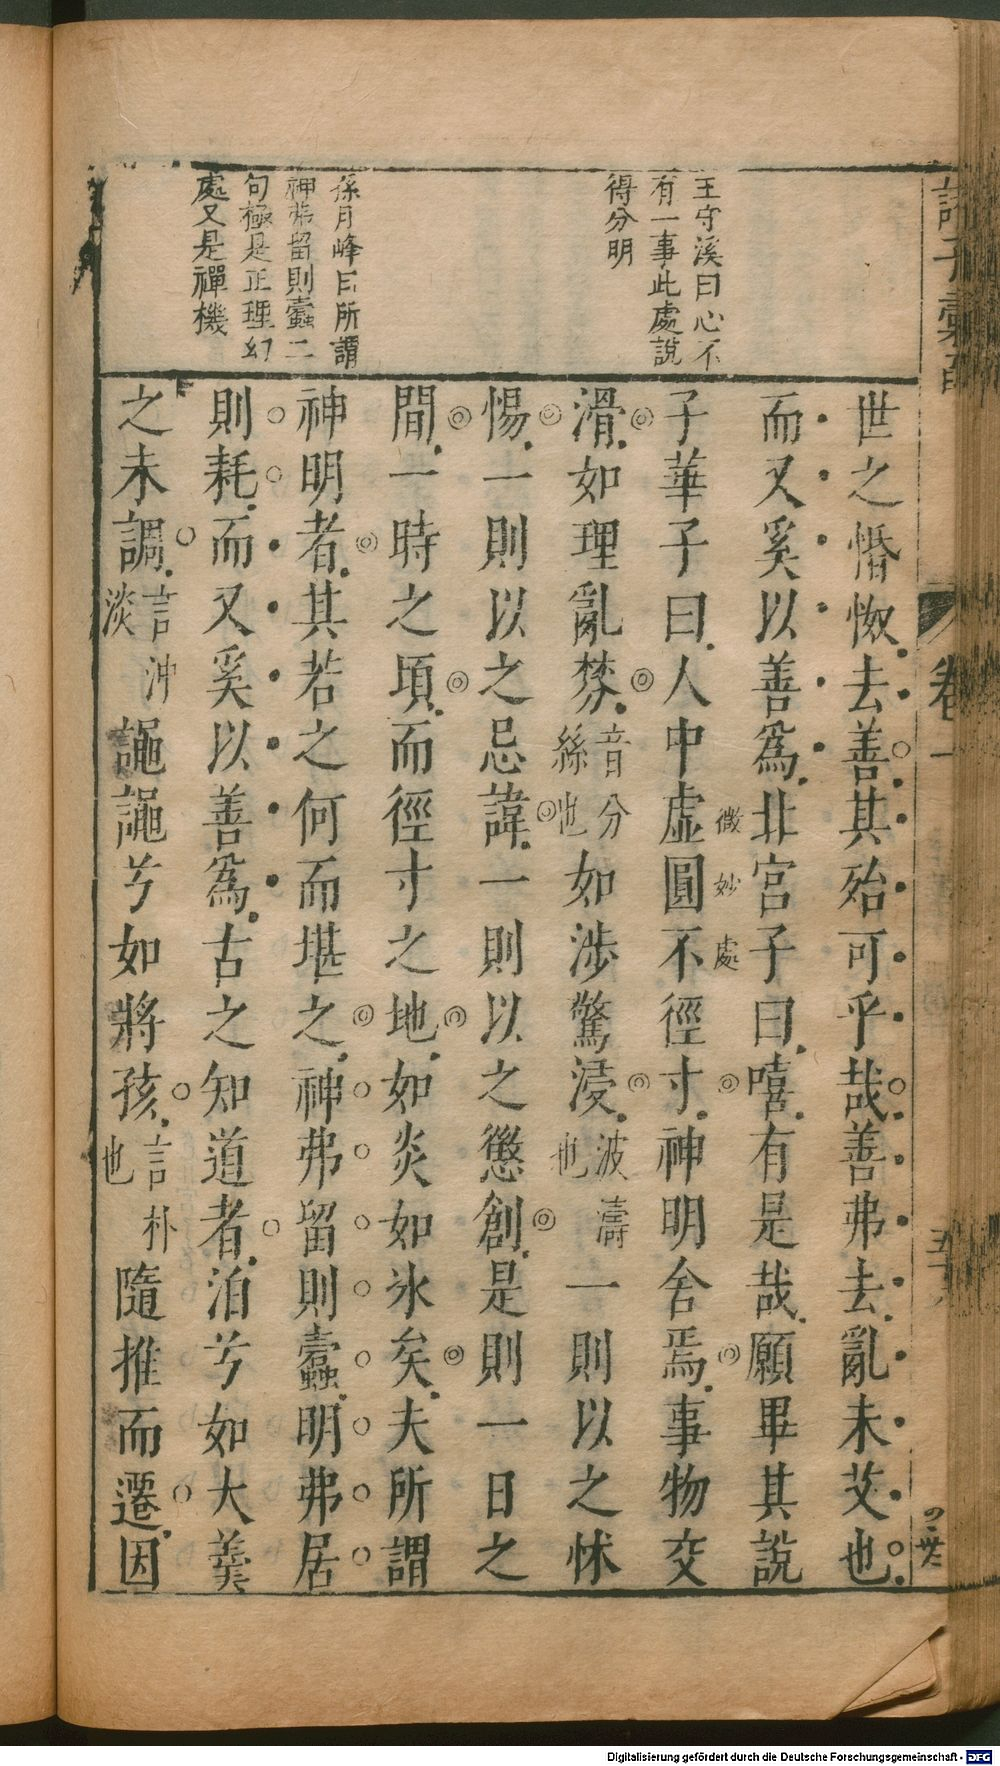 王守溪曰心不
有一事此處說
得分明
孫月峰曰所謂
神弗留則蠹二
句極是正理幻
處又是禪機
世之惛怓去善其殆可乎哉善弗去亂未艾也
而又奚以善爲北宮子曰嘻有是哉願畢其說
子華子曰人中虛圓不徑寸神明舍焉事物交
微妙處
滑如理亂棼音分絲也如涉驚浸波濤也一則以之怵
惕一則以之忌諱一則以之懲創是則一日之
間一時之頃而徑寸之地如炎如氷矣夫所謂
神明者其若之何而堪之神弗留則蠹明弗居
則耗而又奚以善爲古之知道者泊兮如大羹
之未調言沖淡䋲䋲兮如將孩言朴也隨推而遷因
卷一
Digitalisierung gefördert durch die Deutsche Forschungsgemeinschaft - DFG